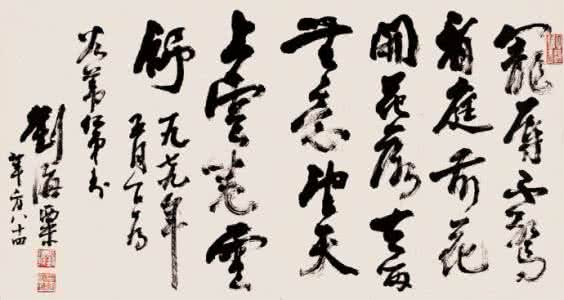 寵辱不驚
看庭前花
開花落去留
無意望天
上雲卷雲
舒
一九七九年
五月
谷葦仁弟
劉海粟
年方八十四